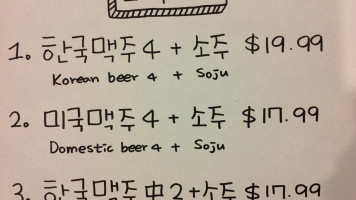 1. 한국맥주 4 + 소주 $19.99
Korean beer 4 + Soju
2. 미국맥주 4 + 소주 $17.99
Domestic beer 4 + Soju
3. 한국맥주 中2+소주 $17.99